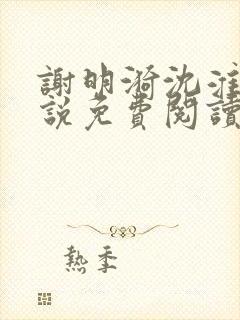 謝明漪沈淮
說免費閱讀
熱季